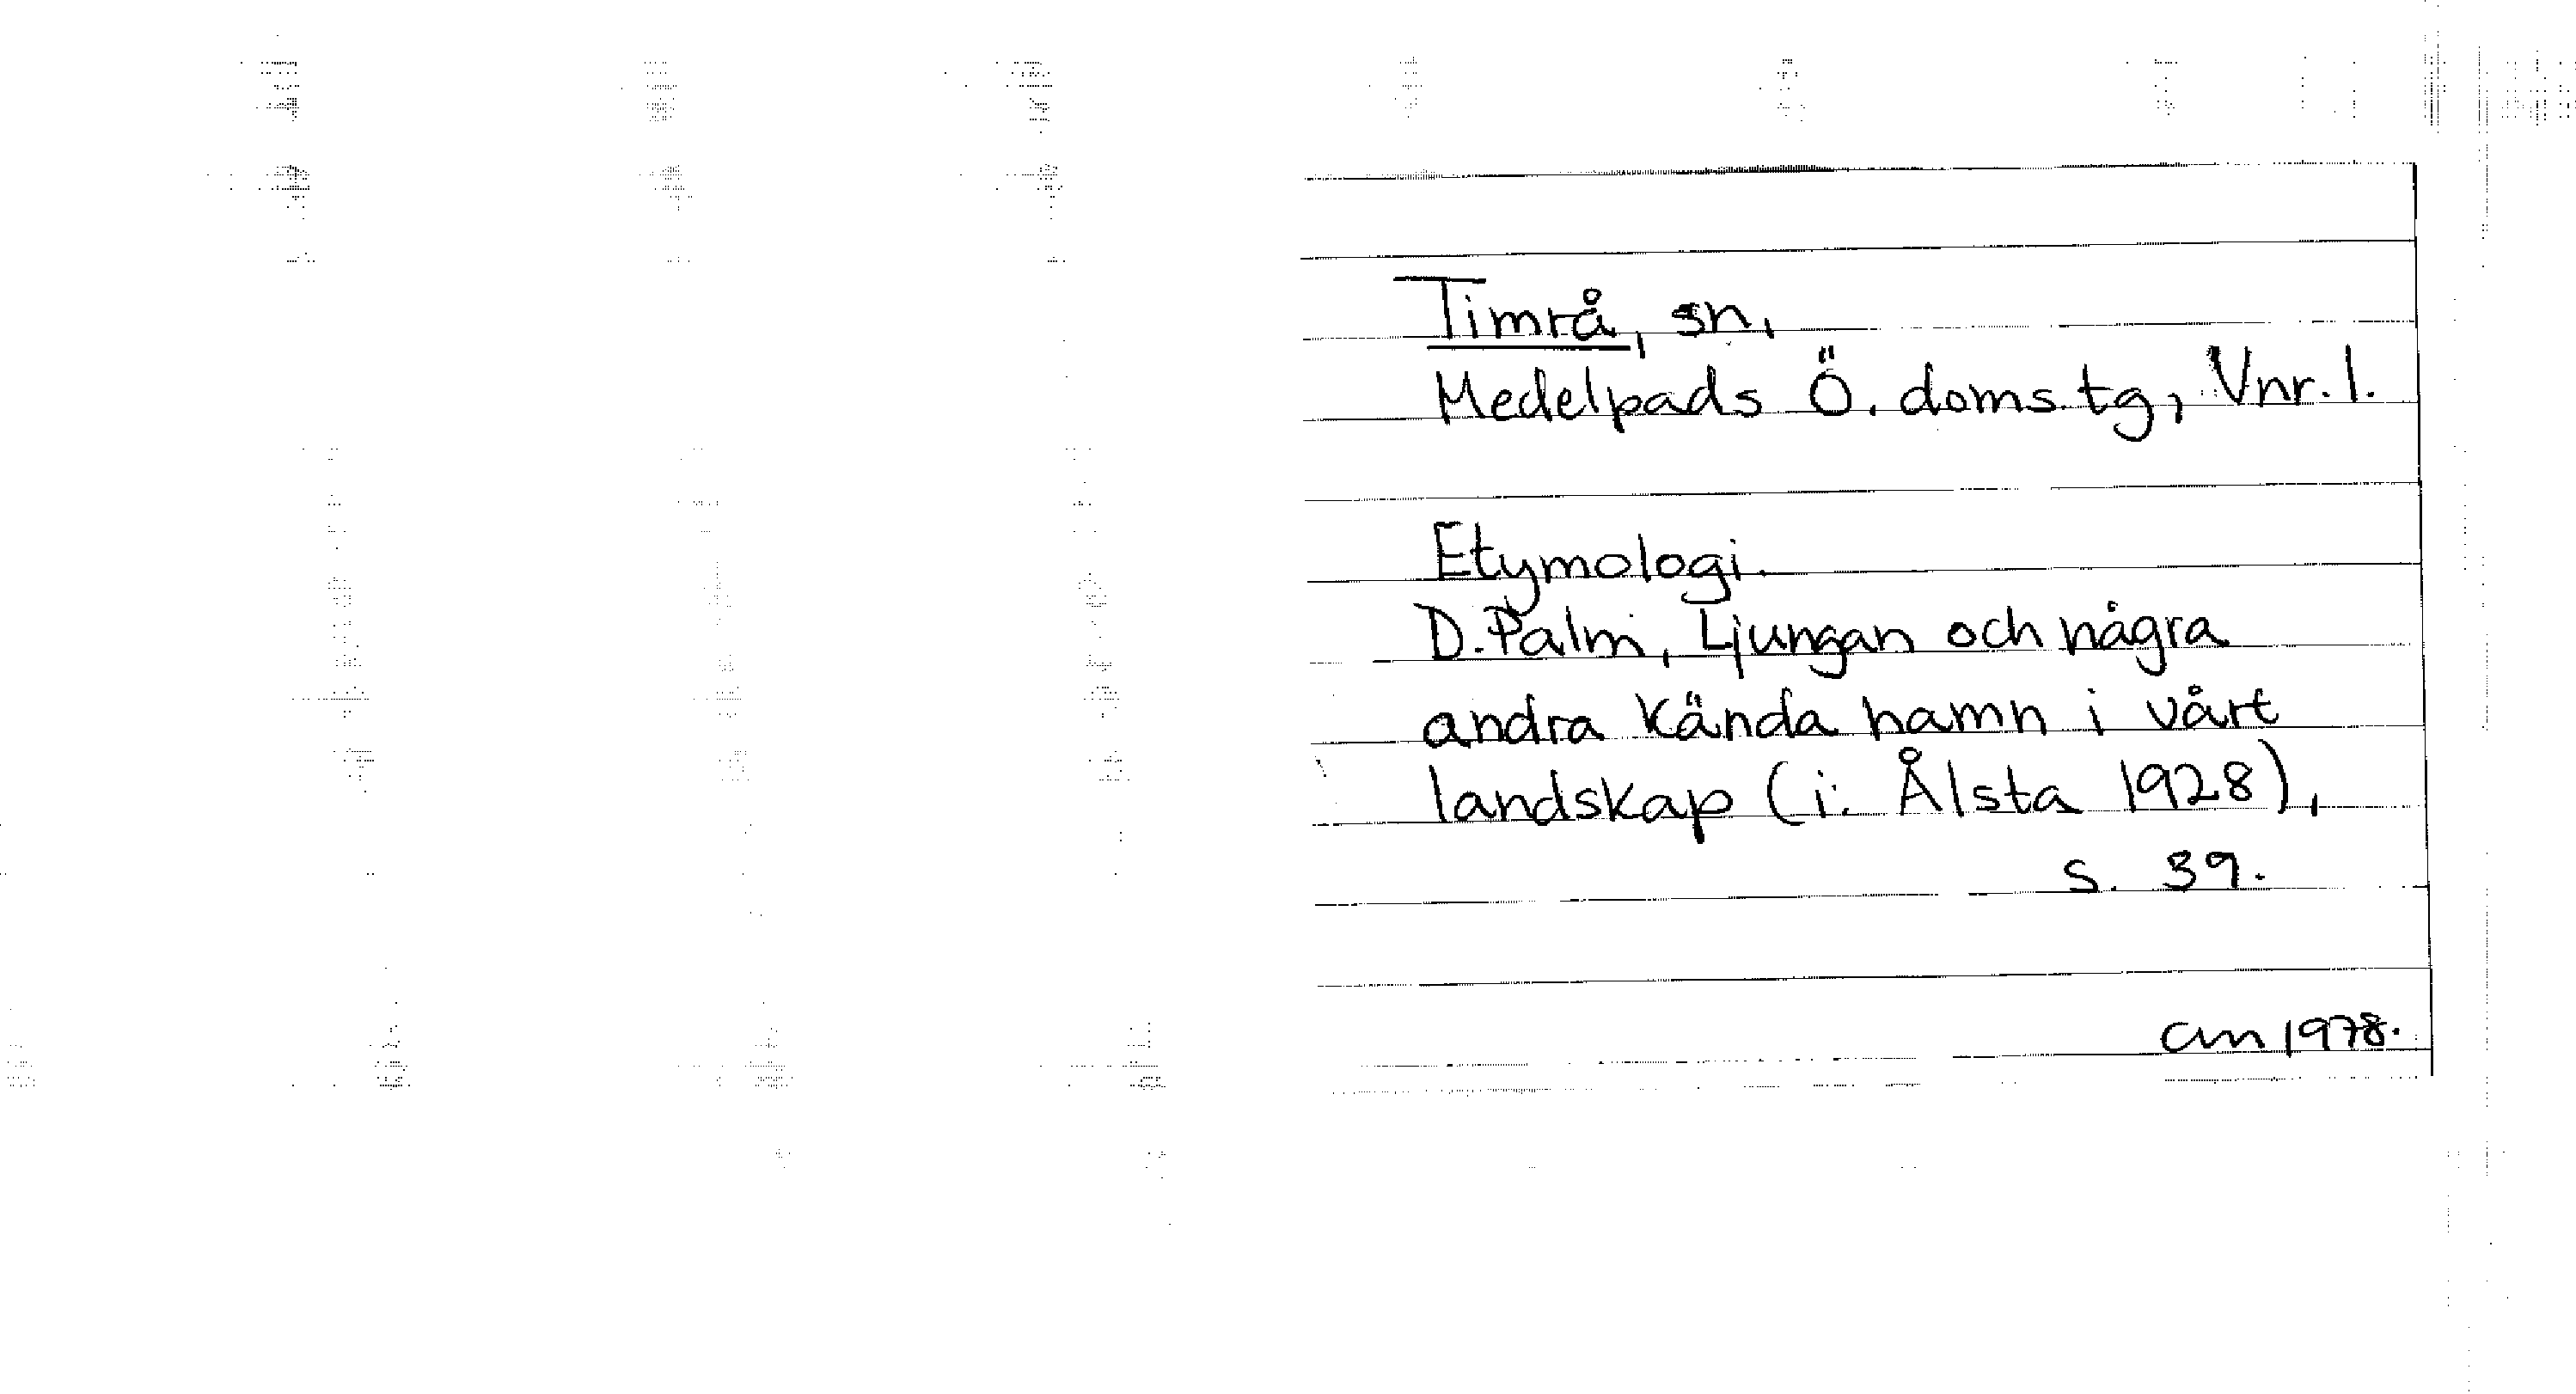 Timrå, sn,
Medelpads Ö. doms.tg, Vnr. 1.
Etymologi.
D. Palm, Ljungan och några
andra kända namn i vårt
landskap (i: Ålsta 1928),
s. 39.
am 1978.